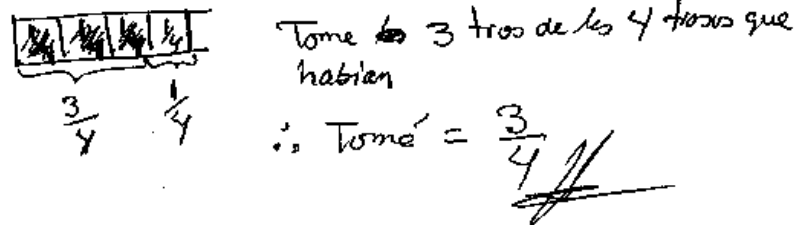 1/4 1/4 1/4 1/4
3/4 1/4
Tome 3 tros de los 4 trosos que
habian
∴ Tomé = 3/4